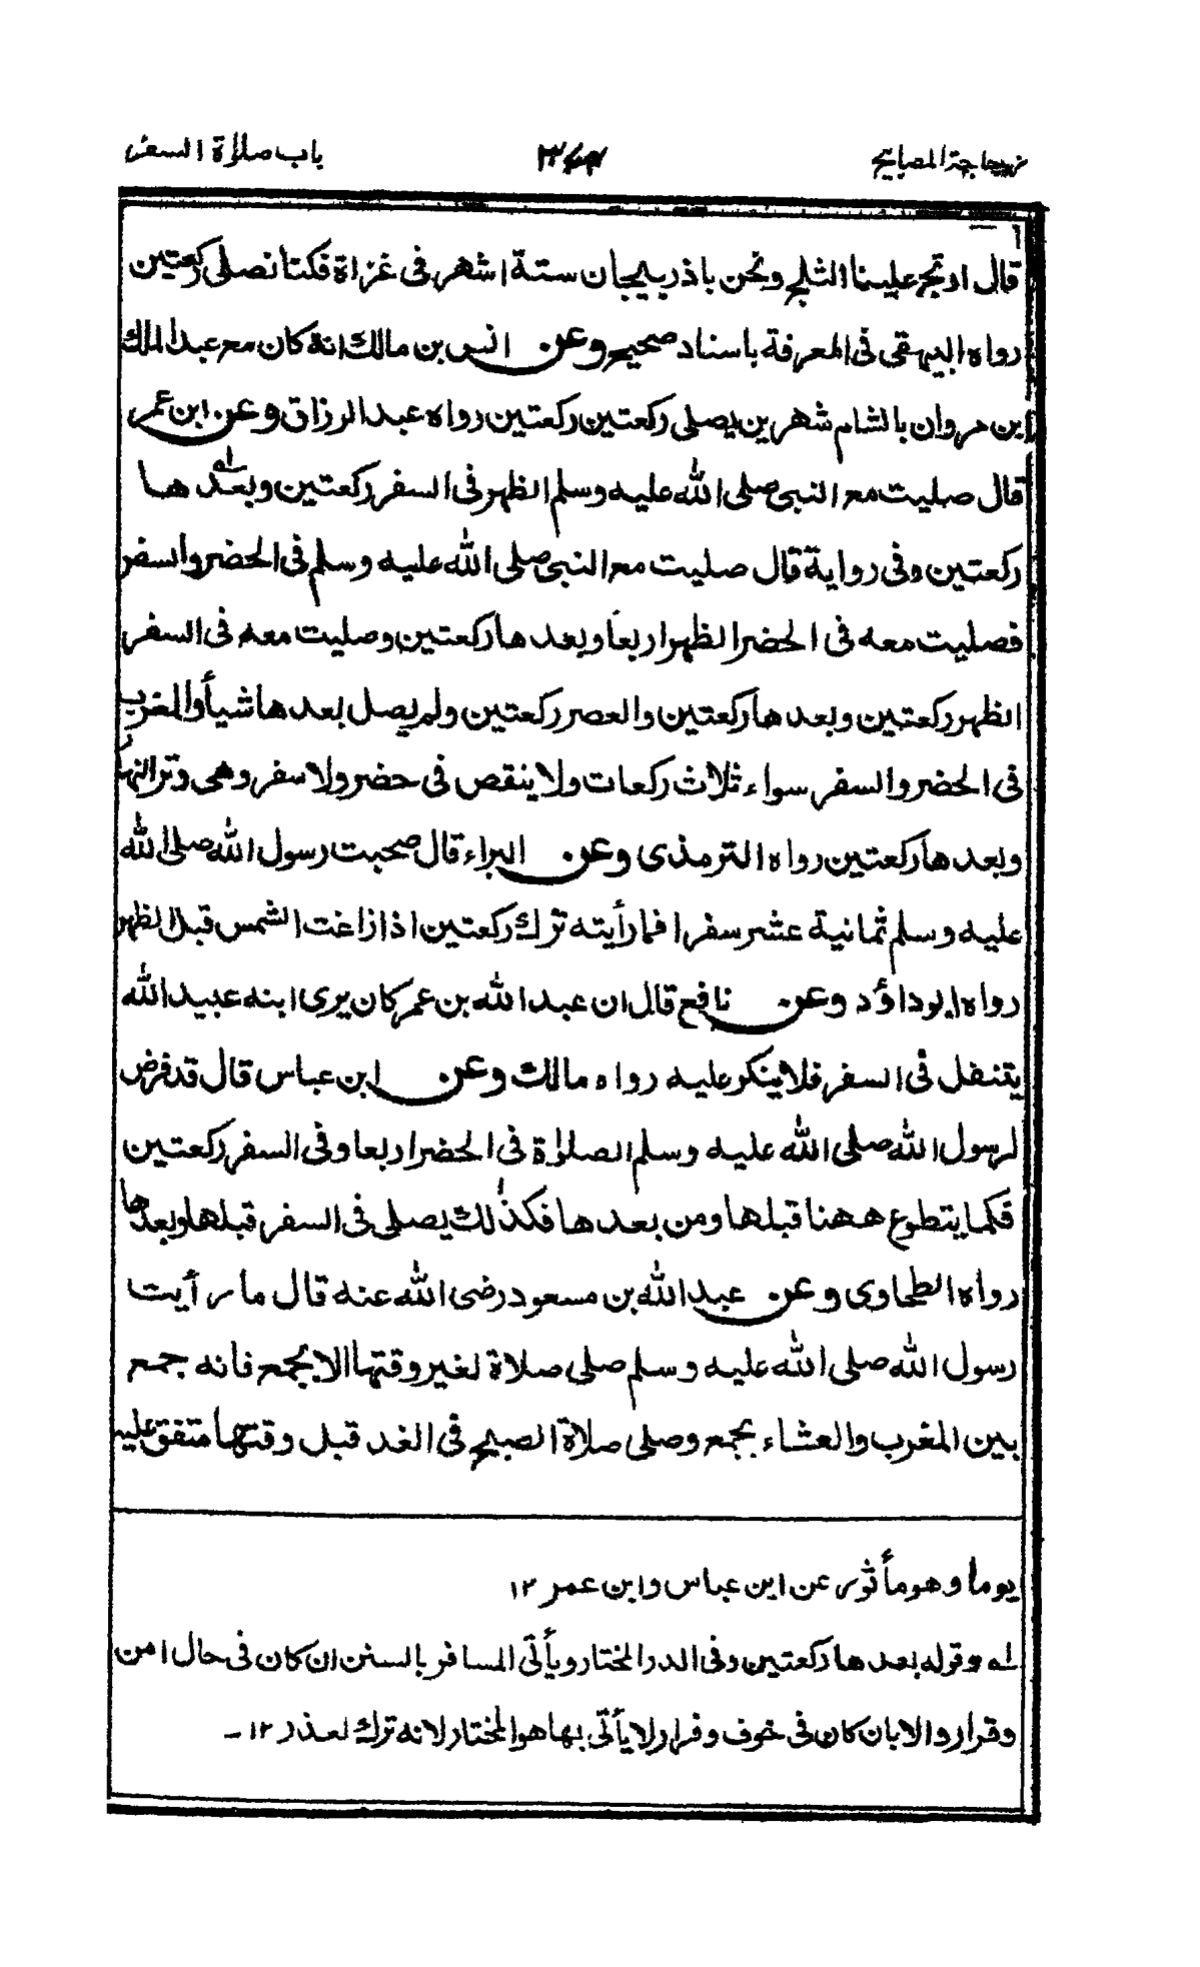 زجاجة المصابيح
باب صلاة السفر
قال ارتج علينا الثلج ونحن باذربيجان ستة اشهر فى غزاة فكنا نصلى ركعتين
رواه البيهقى فى المعرفة باسناد صحيح وعن انس بن مالك انه كان مع عبد الملك
ابن مروان بالشام شهرين يصلى ركعتين ركعتين رواه عبد الرزاق وعن ابن عمر
قال صليت مع النبى صلى الله عليه وسلم الظهر فى السفر ركعتين وبعد ها له
ركعتين وفى رواية قال صليت مع النبى صلى الله عليه وسلم فى الحضر والسفر
فصليت معه فى الحضر الظهر اربعا وبعد ها ركعتين وصليت معه فى السفر
الظهر ركعتين وبعد ها ركعتين والعصر ركعتين ولم يصل بعد ها شيأ والمغرب
فى الحضر والسفر سواء ثلاث ركعات ولا ينقص فى حضر ولا سفر وهى وتر النهار
وبعد ها ركعتين رواه الترمذى وعن البراء قال صحبت رسول الله صلى الله
عليه وسلم ثمانية عشر سفرا فما رأيته ترك ركعتين اذا زاغت الشمس قبل الظهر
رواه ابو داؤد وعن نافع قال ان عبد الله بن عمر كان يرى ابنه عبيد الله
يتنفل فى السفر فلا ينكر عليه رواه مالك وعن ابن عباس قال قد فرض
لرسول الله صلى الله عليه وسلم الصلوٰة فى الحضر اربعا وفى السفر ركعتين
فكما يتطوع ههنا قبلها ومن بعد ها فكذٰلك يصلى فى السفر قبلها وبعد ها
رواه الطحاوى وعن عبد الله بن مسعود رضى الله عنه قال ما رأيت
رسول الله صلى الله عليه وسلم صلى صلاة لغير وقتها الا بجمع فانه جمع
بين المغرب والعشاء بجمع وصلى صلاة الصبح فى الغد قبل وقتها متفق عليه
يوما وهو مأثور عن ابن عباس وابن عمر ١٢
له وقوله بعد ها ركعتين وفى الدر المختار ويأتى المسافر بالسنن ان كان فى حال امن
وقرار والا بان كان فى خوف وفرار لا يأتى بها هو المختار لانه ترك لعذر ١٢ -